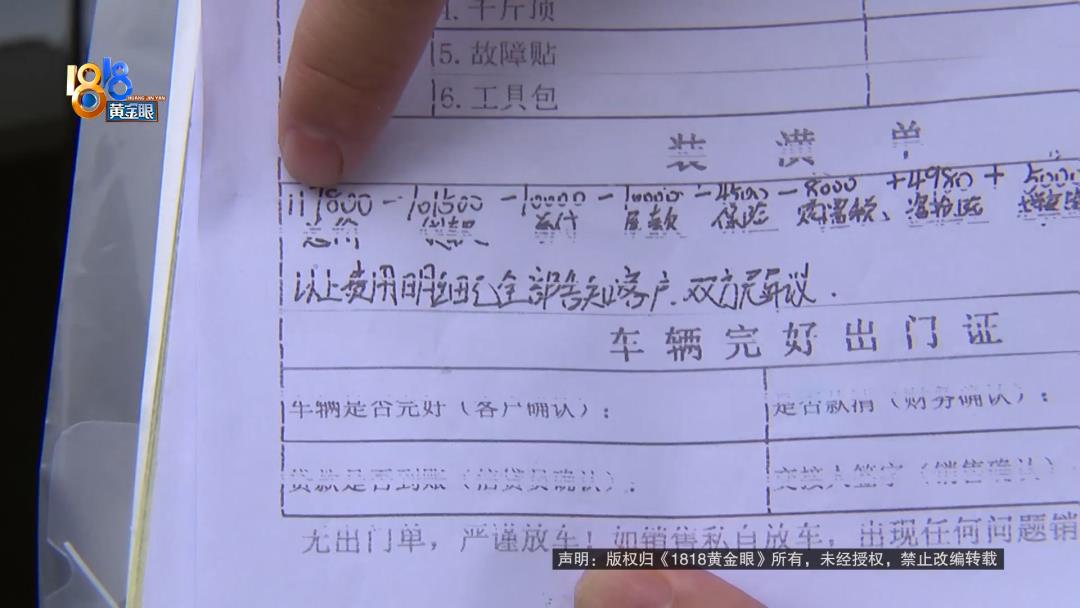 1818
HUANG JIN YAN
黄金眼
4.千斤顶
5.故障贴
6.工具包
装潢单
117800 - 101500 - 10000 - 10000 - 4500 - 8000 + 4980 + 5000
首付 尾款 保险 购置税、盗抢险
以上费用明细已全部告知客户.双方无异议.
车辆完好出门证
车辆是否完好（客户确认）： 是否款清（财务确认）：
贷款是否到账（信贷员确认）： 交接人签字（销售确认）
无出门单，严谨放车！如销售私自放车，出现任何问题销
声明：版权归《1818黄金眼》所有，未经授权，禁止改编转载